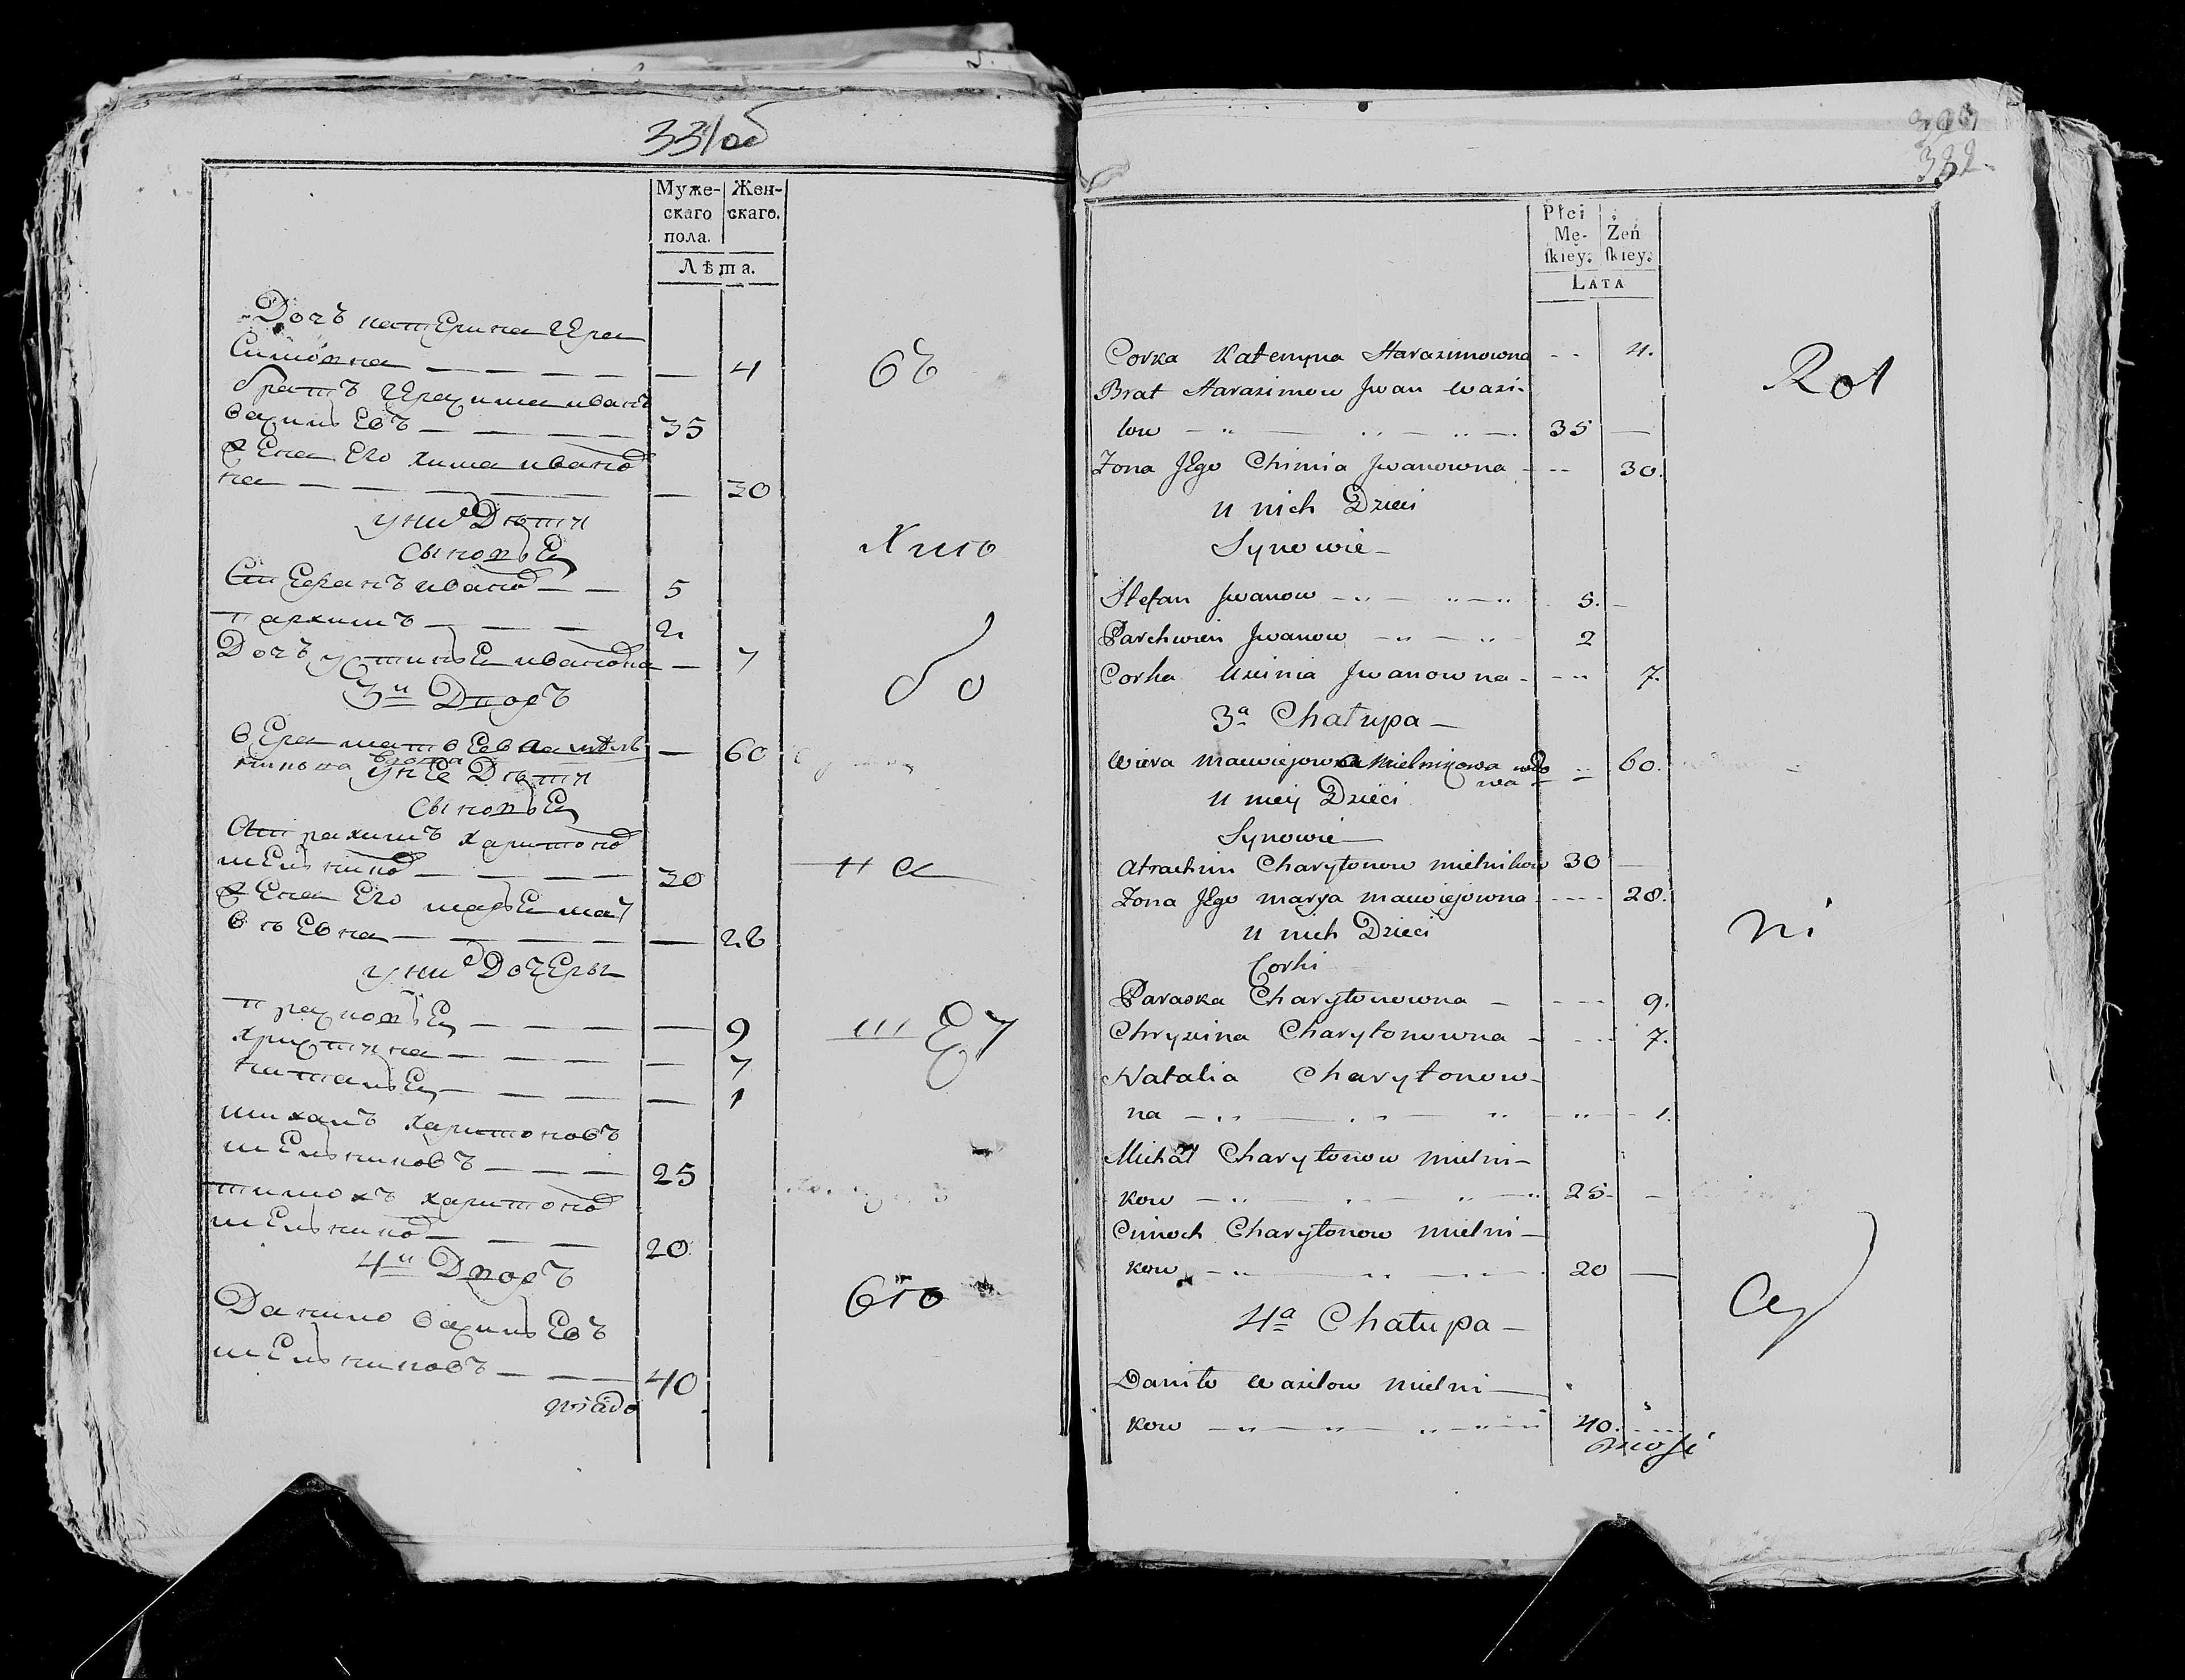 331об
Муже- Жен-
скаго скаго.
пола.
Лѣта.
Дочъ катерина Гера
симовна — — — — — — 4
братъ Герасима иванъ
василевъ — — — — 35
жена Его хима иванов
на — — — — — — 30
у них Дѣти
сыновья
Стефанъ иванов — — 5
пархимъ — — — — 2
Дочъ устинья ивановна — 7
3й Дворъ
вера матвеева мель — 60
никова вдова
у нее Дѣти
сыновья
Отрахимъ харитонов
мельников — — — — 30
жена Его марья мат
вѣевна — — — — — 28
у них Дочеры
прасковья — — — — 9
христина — — — — 7
наталья — — — — 1
михаилъ харитоновъ
мельниковъ — — — 25
тимохъ харитонов
мельников — — — 20
4й Дворъ
Данило василевъ
мельниковъ — — — 40
6ъ
бо
на
332
Płci Żeń
Mę- skiey.
skiey.
LATA
Corka Kateryna Harasimowna - - 4.
Brat Harasimow Jwan Wasi-
low — 35 —
Zona Jego Chimia Jwanowna - - 30.
U nich Dzieci
Synowie —
Stefan Jwanow — 5. —
Parchwien Jwanow — 2
Corka Uscinia Jwanowna - - 7.
3a Chałupa —
Wiera Maciejowna Mielnikowa wdo - 60.
wa —
U niey Dzieci
Synowie —
Atrachim Charytonow Mielnikow 30 —
Zona Jego Marya Maciejowna - - 28.
U nich Dzieci
Corki
Paraska Charytonowna — - - 9.
Chrycina Charytonowna - - 7.
Natalia Charytonow-
na — 1.
Michał Charytonow Mielni-
kow — 25 - —
Cimoch Charytonow Mielni —
kow — 20 —
4a Chałupa —
Daniło Wasilow Mielni —
kow — 40.
Rot
ni